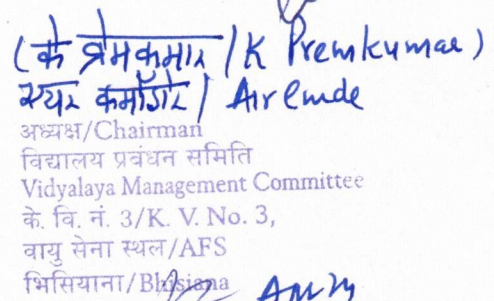 (के प्रेमकुमार / K Premkumar)
एयर कमोडोर / Air Cmde
अध्यक्ष/Chairman
विद्यालय प्रबंधन समिति
Vidyalaya Management Committee
के. वि. नं. 3/K. V. No. 3,
वायु सेना स्थल/AFS
भिसियाना/Bhisiana